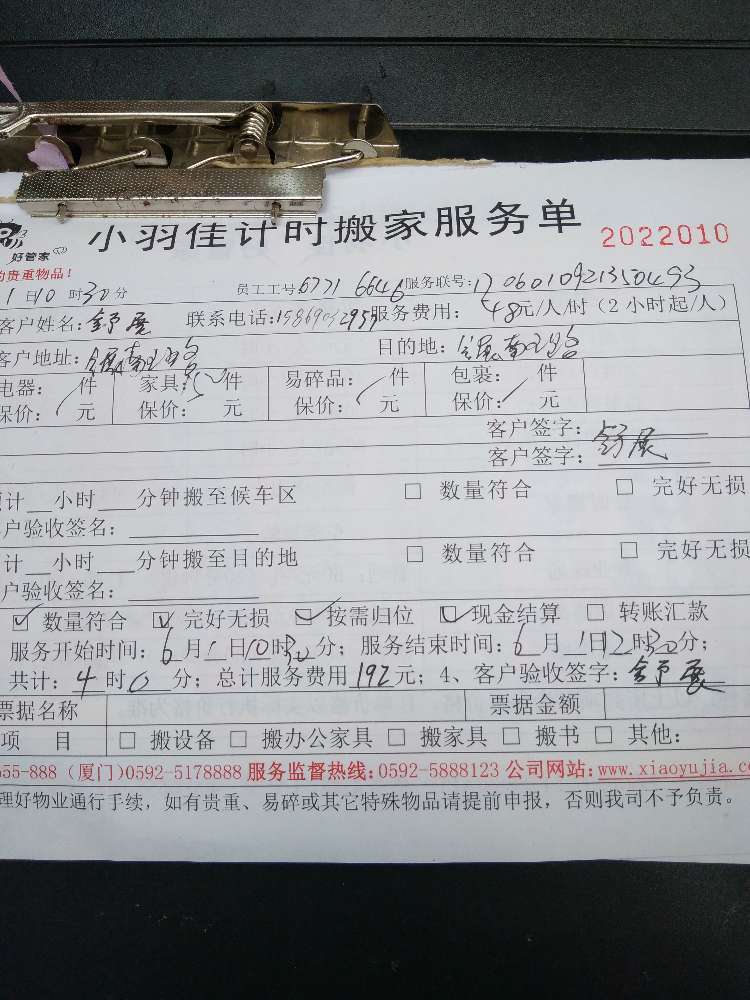 小羽佳计时搬家服务单 2022010
好管家
的贵重物品！
1日10时30分 员工工号:6771 6646 服务联号:1706010921350493
客户姓名:舒展 联系电话: 服务费用: 48元/人/时(2小时起/人)
客户地址: 目的地:
电器: 件 家具: 件 易碎品: 件 包裹: 件
保价: 元 保价: 元 保价: 元 保价: 元
客户签字:
客户签字:舒展
计__小时___分钟搬至候车区 □ 数量符合 □ 完好无损
户验收签名:
计__小时___分钟搬至目的地 □ 数量符合 □ 完好无损
户验收签名:
☑ 数量符合 ☑ 完好无损 ☑ 按需归位 ☑ 现金结算 □ 转账汇款
服务开始时间:6月1日10时30分; 服务结束时间:6月1日12时30分;
共计:4时0分; 总计服务费用192元; 4、客户验收签字:舒展
票据名称 票据金额
项 目 □ 搬设备 □ 搬办公家具 □ 搬家具 □ 搬书 □ 其他:
55-888 (厦门)0592-5178888 服务监督热线:0592-5888123 公司网站:www.xiaoyujia.co
理好物业通行手续,如有贵重、易碎或其它特殊物品请提前申报,否则我司不予负责。